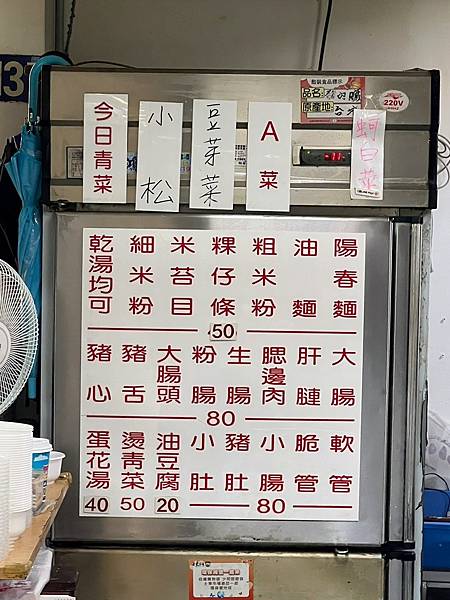 散裝食品標示
品名:
原產地:
220V
-11
蚵白菜
A菜
豆芽菜
小松
今日青菜
陽春麵
油麵
粗米粉
粿仔條
米苔目
細米粉
乾湯均可
50
大腸
肝
腮邊肉
生腸
粉腸
大腸頭
豬舌
豬心
80
軟管
脆管
小腸
豬肚
小肚
80
油豆腐
20
燙青菜
50
蛋花湯
40